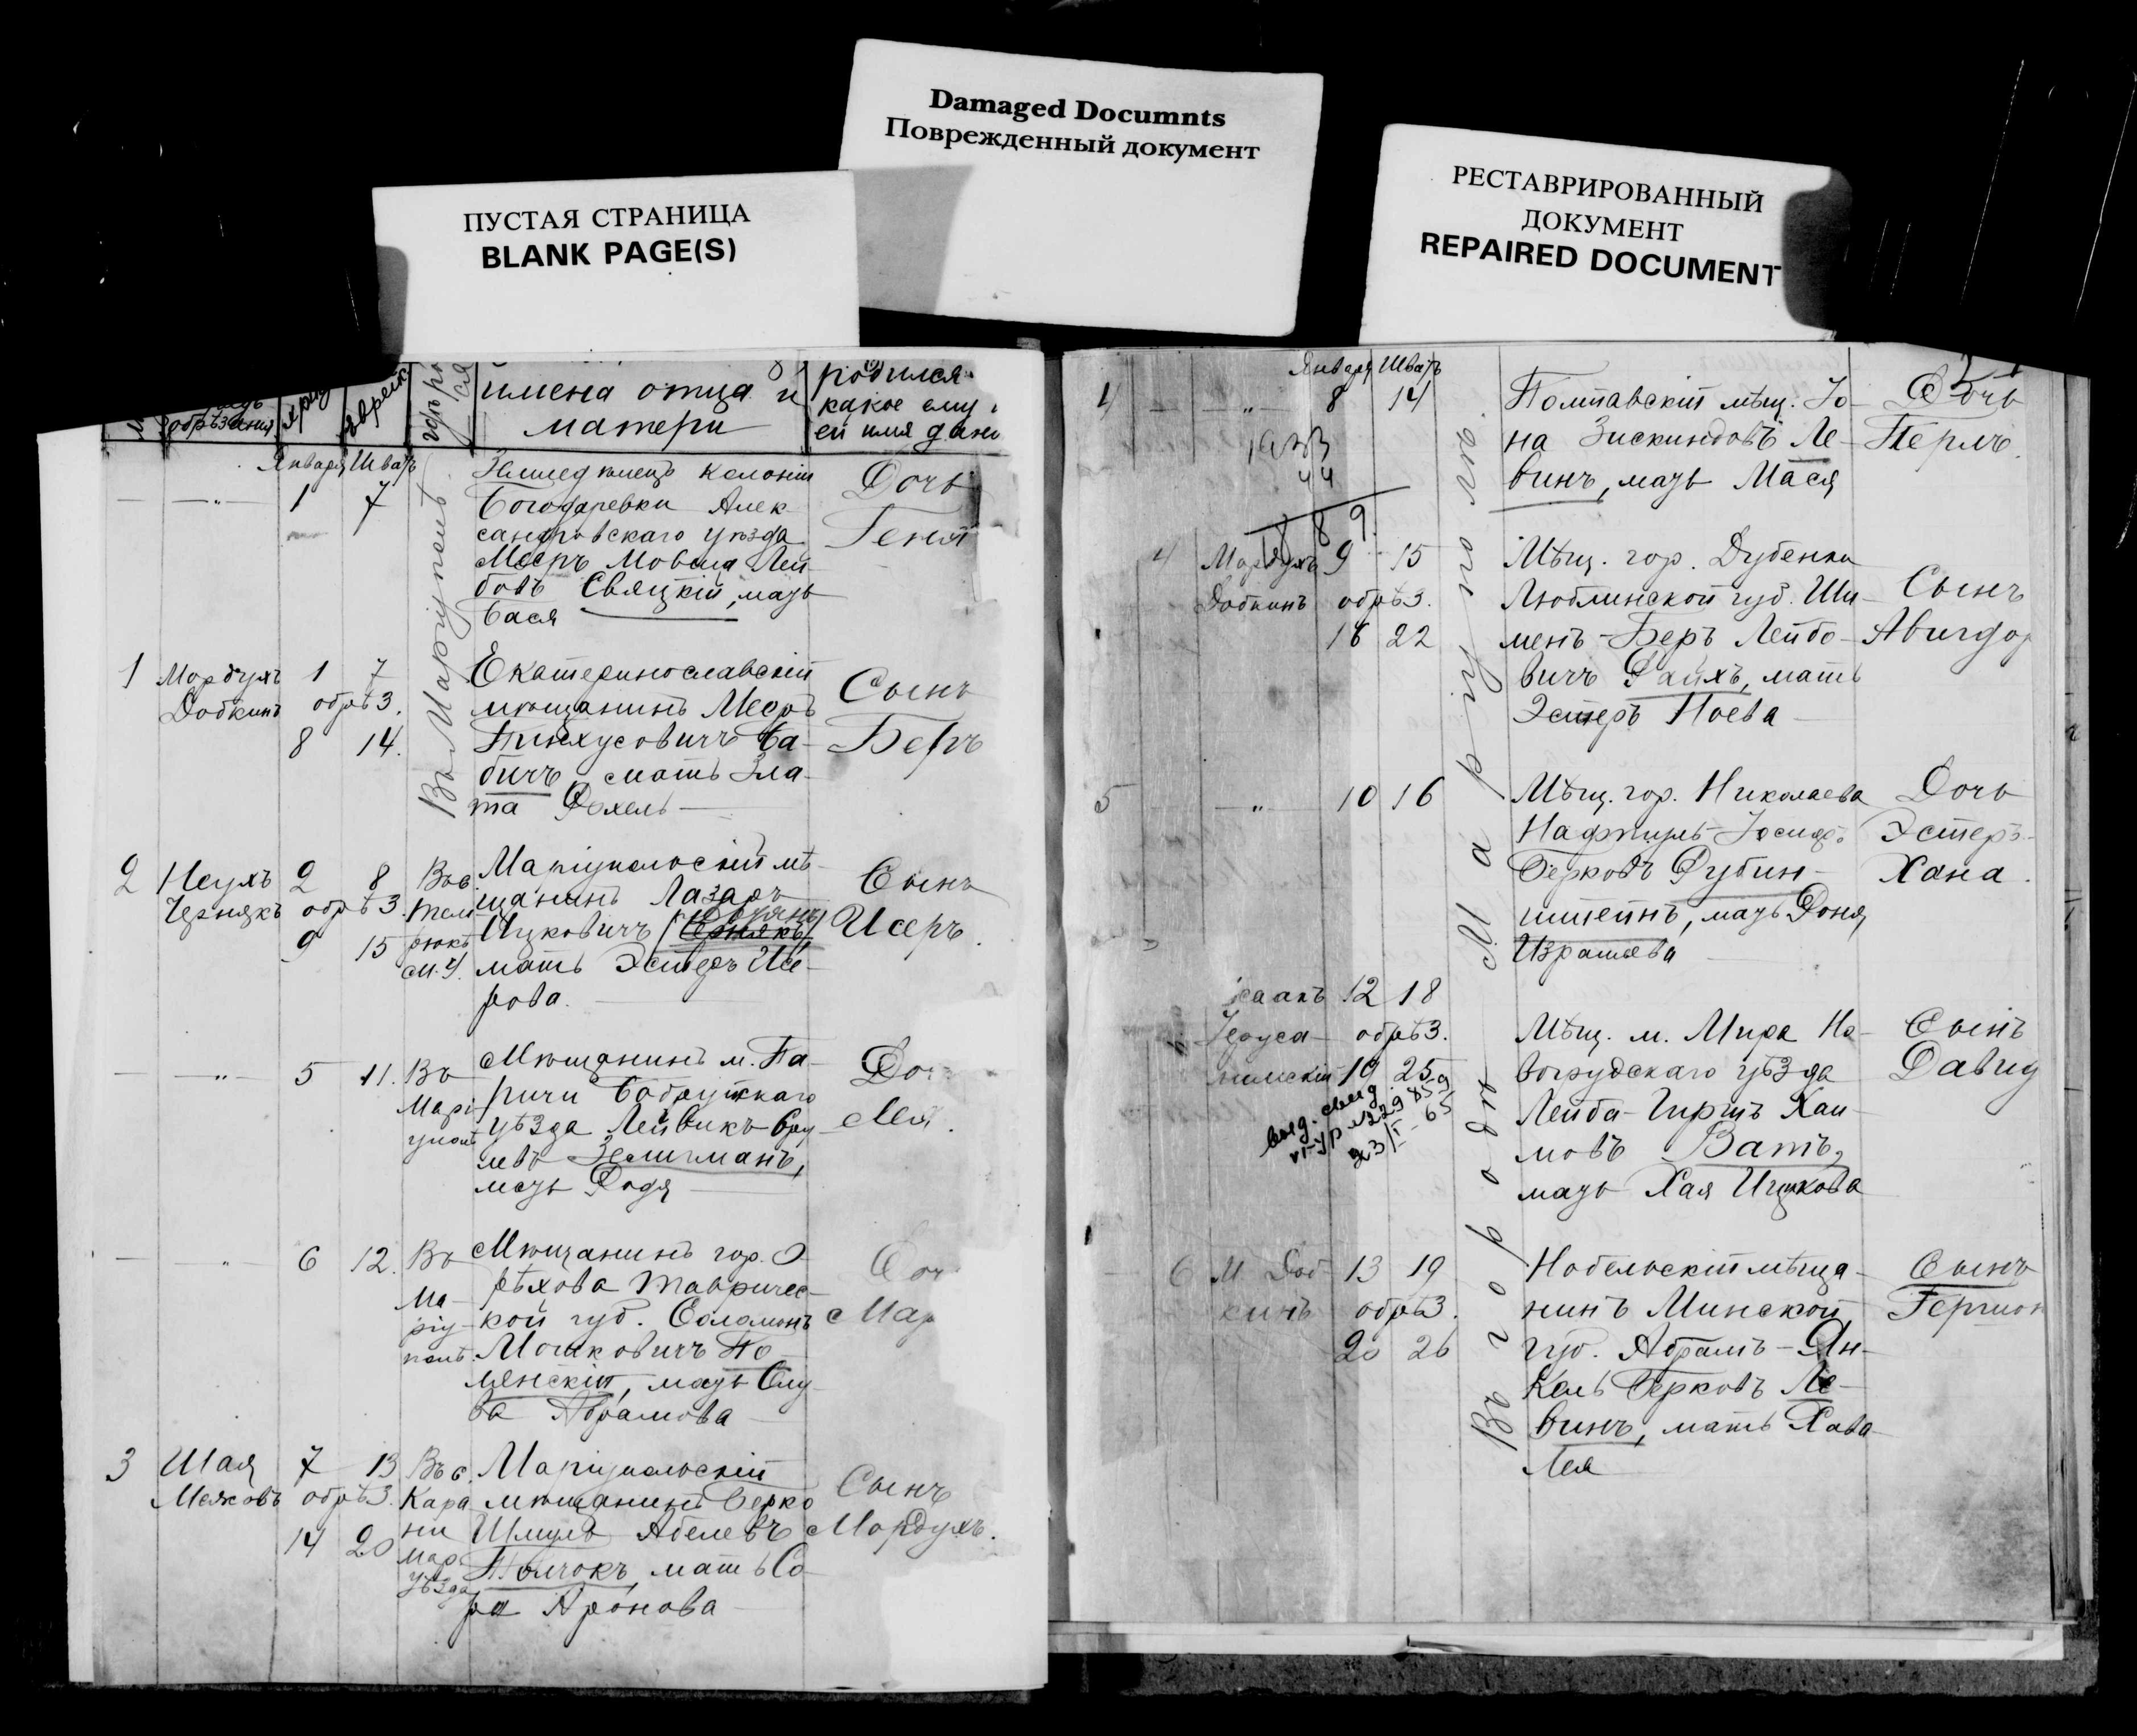 Damaged Documnts
Поврежденный документ
ПУСТАЯ СТРАНИЦА
BLANK PAGE(S)
РЕСТАВРИРОВАННЫЙ
ДОКУМЕНТ
REPAIRED DOCUMENT
обрѣзанія
имена отца и
матери
родился
какое ему и
ей имя дано
Января Шватъ
— „ — 1 7
Колоніи
Богодаревки Алек
сандровскаго уѣзда
Мееръ Мовша Лей
бовъ Свяцкій, мать
Бася
Дочь
Геня
Въ Маріуполѣ
1 Мордухъ 1 7
Добкинъ обрѣз.
8 14.
Екатеринославскій
мѣщанинъ Мееръ
Пинхусовичъ Ба-
бичъ, мать Зла-
та Рохель
Сынъ
Беръ
2 Неухъ 2 8
Чернякъ обрѣз.
9 15
Въ с.
М. У.
Маріупольскій мѣ-
щанинъ Лазарь
Ицковичъ
мать Эстеръ Исе-
рова.
Сынъ
Исеръ.
— „ — 5 11.
Въ
Марі
уполѣ
Мѣщанинъ м. Па-
ричи Бобруйскаго
уѣзда Лейвикъ
Зелигманъ,
мать Родя
До
Лея.
— „ — 6 12.
Въ
Ма-
ріу-
полѣ.
Мѣщанинъ гор. О-
рѣхова Тавричес-
кой губ. Соломонъ
Мошковичъ По-
лянскій, мать Слу
ва Абрамова
Мар
3 Шая 7 13
Межовъ обрѣз.
14 20
Въ с.
Кара
ни
Мар.
уѣзда
Маріупольскій
мѣщанинъ Берко
Шмуль Абелевъ
Полчокъ, мать Со-
ра Аронова
Сынъ
Мордухъ.
Января Шватъ
4 — „ — 8 14
Полтавскій мѣщ. Іо-
на Зискиндовъ Ле-
винъ, мать Мася
Дочь
Перль.
44
8 9.
Въ городѣ Маріуполѣ.
4 Мордухъ 9 15
Добкинъ обрѣз.
16 22
Мѣщ. гор. Дубенки
Люблинской губ. Ши-
менъ-Беръ Лейбо-
вичъ Райхъ, мать
Эстеръ Ноева
Сынъ
Авигдор
5 — „ 10 16
Мѣщ. гор. Николаева
Нафтуль-Іосифъ
Берковъ Рубин-
штейнъ, мать Роня
Израилева
Дочь
Эстеръ-
Хана.
Исаакъ 12 18
Іеруса- обрѣз.
лимскій 19 25
выд. свид.
23/I-65
Мѣщ. м. Мира Но-
вогрудскаго уѣзда
Лейба-Гиршъ Хаи-
мовъ Ватъ,
мать Хая Ицкова
Сынъ
Давид
6 М Доб- 13 19
кинъ обрѣз.
20 26
Нобельскій мѣща-
нинъ Минской
губ. Абрамъ-Ян-
кель Берковъ Ле-
винъ, мать Хава
Лея
Сынъ
Гершон